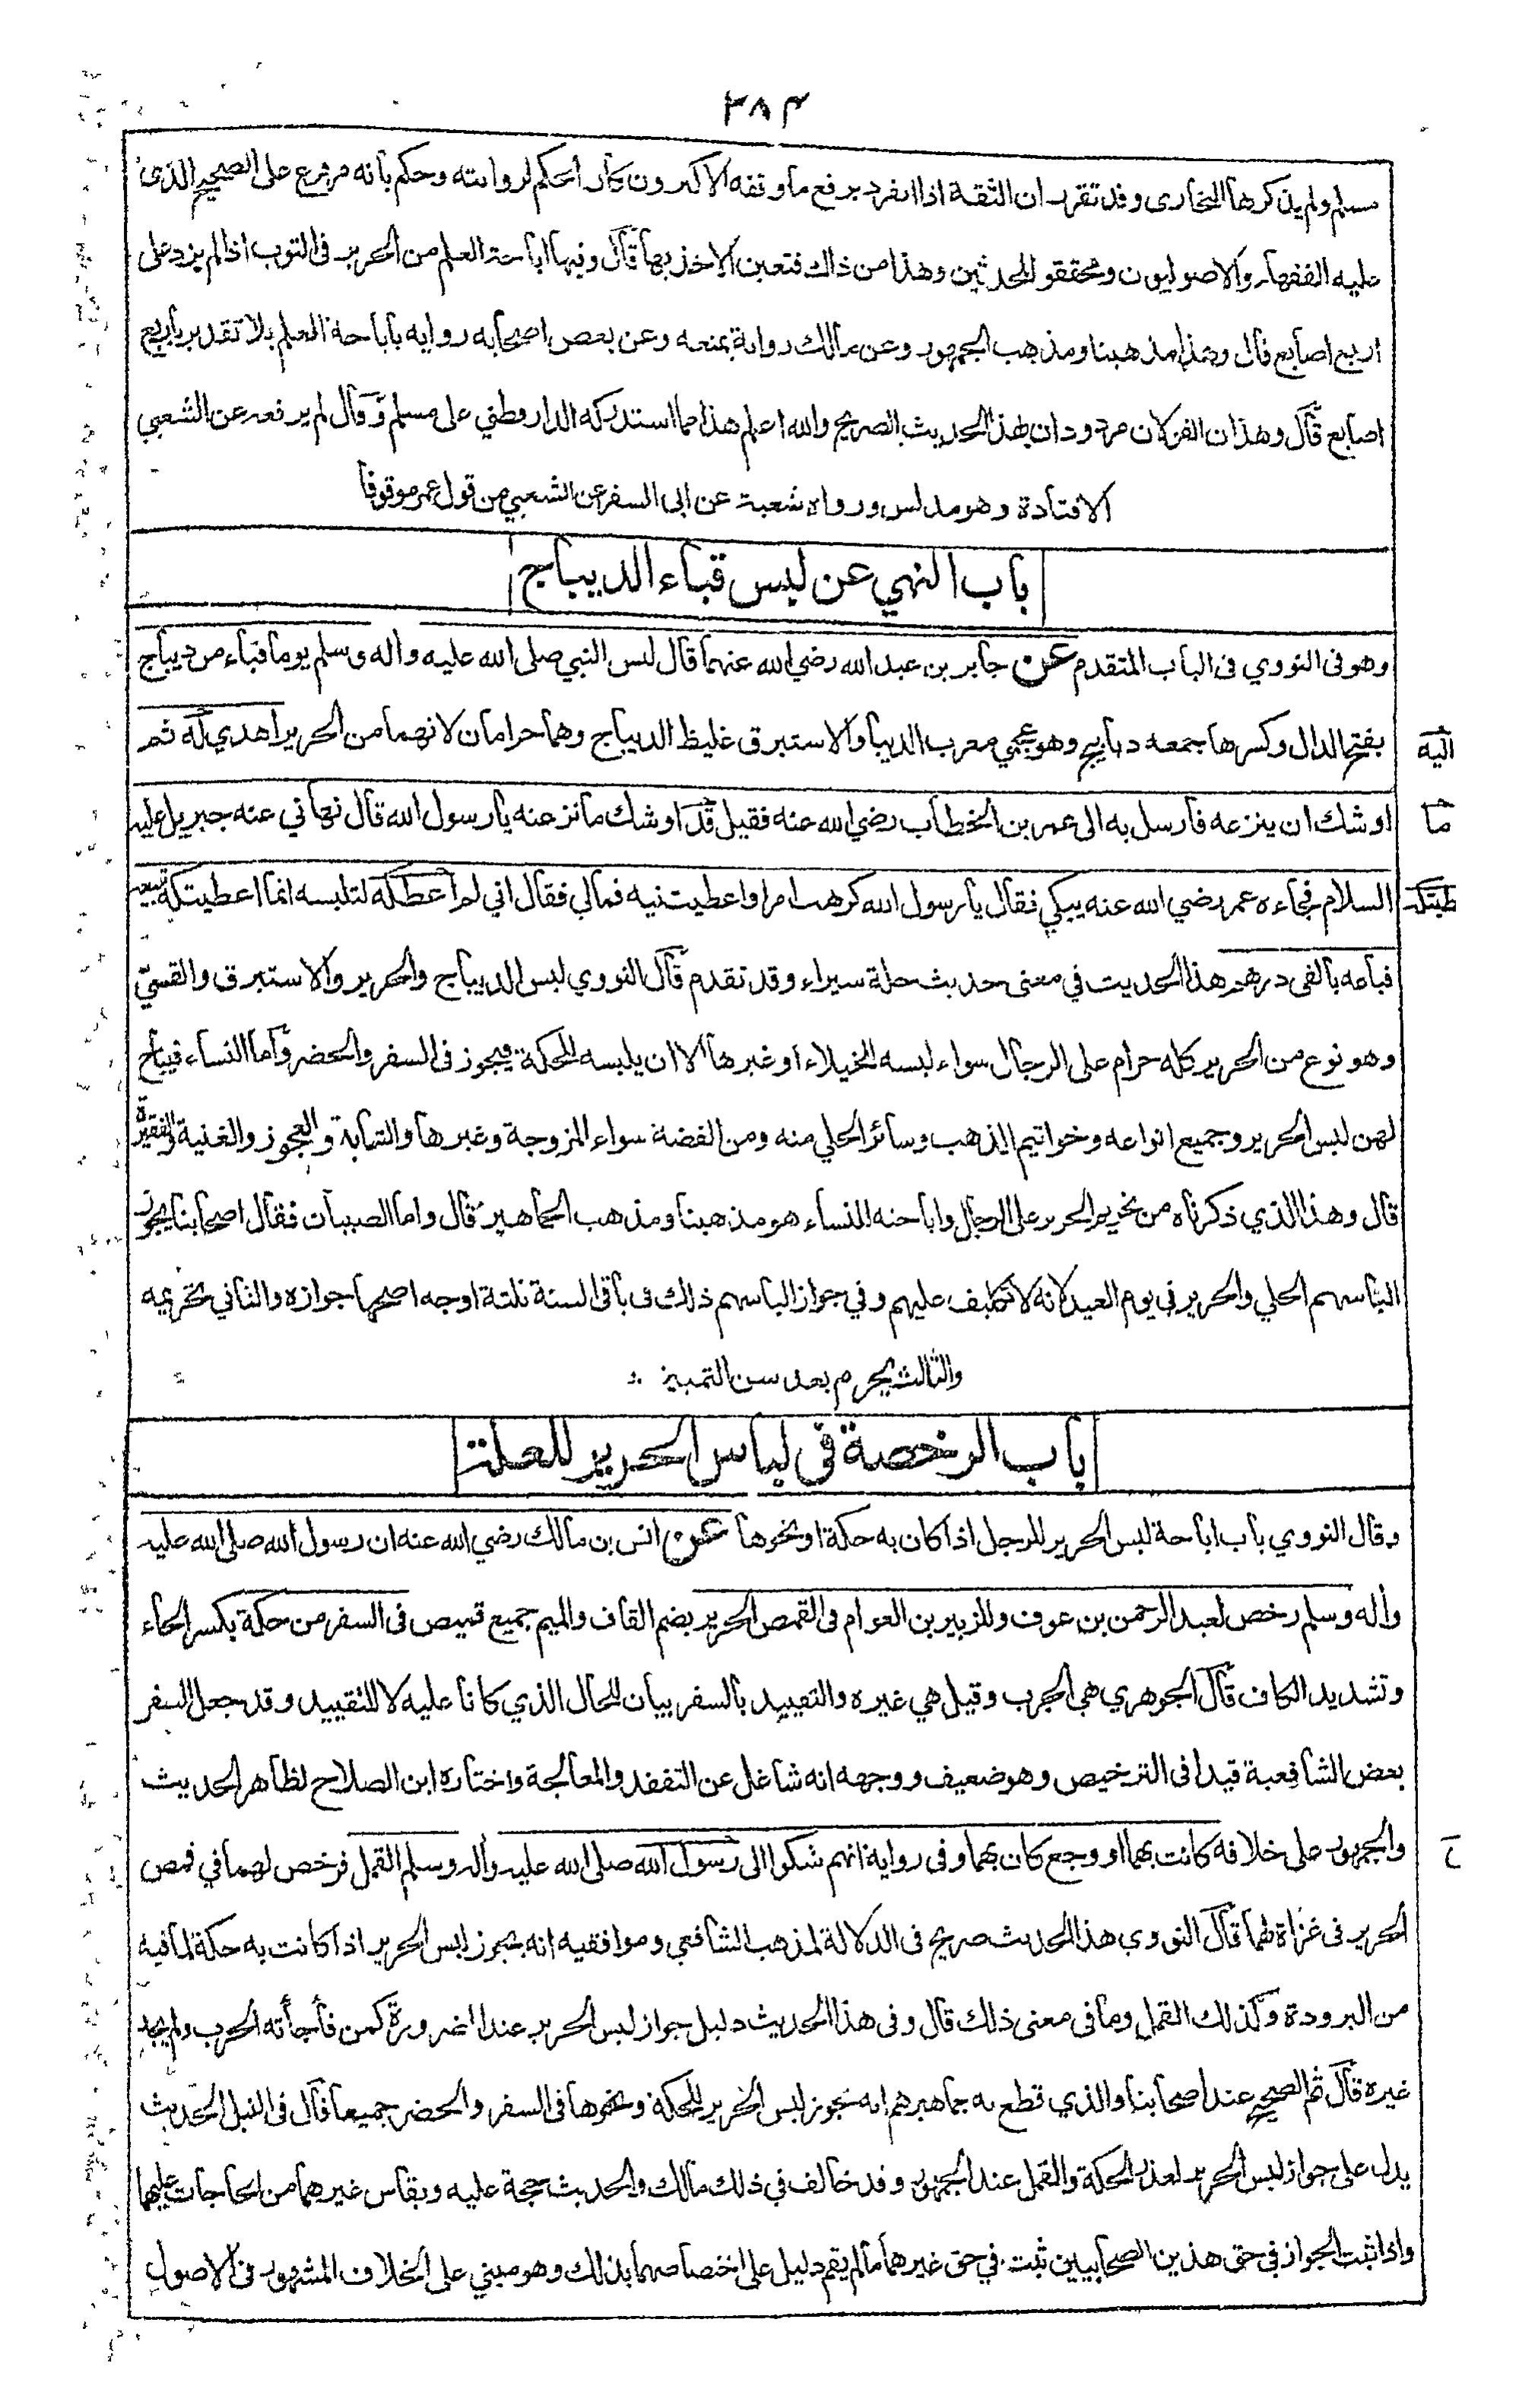 ٣٨٤
مسلم ولم يذكرها البخارى وقد تقرر ان الثقة اذا انفرد برفع ما وقفه الاكثرون كان الحكم لروايته وحكم بانه مرفوع على الصحيح الذى
عليه الفقهاء والاصوليون ومحققو المحدثين وهذا من ذاك فتعين الاخذ بها قال وفيها اباحة العلم من الحرير فى الثوب اذا لم يزد على
اربع اصابع قال وهذا مذهبنا ومذهب الجمهور وعن مالك رواية بمنعه وعن بعض اصحابه رواية باباحة العلم بلا تقدير باربع
اصابع قال وهذان القولان مردودان بهذا الحديث الصريح والله اعلم هذا مما استدركه الدارقطني على مسلم وقال لم يرفعه عن الشعبي
الا قتادة وهو مدلس ورواه شعبة عن ابى السفر عن الشعبي من قول عمر موقوفا
باب النهي عن لبس قباء الديباج
وهو فى النووي فى الباب المتقدم عن جابر بن عبد الله رضي الله عنهما قال لبس النبي صلى الله عليه واله وسلم يوما قباء من ديباج
بفتح الدال وكسرها جمعه ديابيج وهو عجمي معرب الديبا والاستبرق غليظ الديباج وهما حرامان لانهما من الحرير اهدي له ثم
اليه
اوشك ان ينزعه فارسل به الى عمر بن الخطاب رضي الله عنه فقيل قد اوشك ما نزعته يا رسول الله قال نهاني عنه جبريل عليه
ما
السلام فجاءه عمر رضي الله عنه يبكي فقال يا رسول الله كرهت امرا واعطيتنيه فمالي فقال اني لم اعطكه لتلبسه انما اعطيتكه تبيعه
فباعه بالفى درهم هذا الحديث في معنى حديث حلة سيراء وقد تقدم قال النووي لبس الديباج والحرير والاستبرق والقسيّ
وهو نوع من الحرير كله حرام على الرجال سواء لبسه للخيلاء او غيرها الا ان يلبسه للحكة فيجوز فى السفر والحضر واما النساء فيباح
لهن لبس الحرير وجميع انواعه وخواتيم الذهب وسائر الحلي منه ومن الفضة سواء المزوجة وغيرها والشابة والعجوز والغنية والفقيرة
قال وهذا الذي ذكرناه من تحريم الحرير على الرجال واباحته للنساء هو مذهبنا ومذهب الجماهير قال واما الصبيان فقال اصحابنا يجوز
الباسهم الحلي والحرير في يوم العيد لانه لا تكليف عليهم وفي جواز الباسهم ذلك فى باقى السنة ثلثة اوجه اصحها جوازه والثاني تحريمه
والثالث يحرم بعد سن التمييز
باب الرخصة في لباس الحرير للعلة
وقال النووي باب اباحة لبس الحرير للرجل اذا كان به حكة او نحوها عن انس بن مالك رضي الله عنه ان رسول الله صلى الله عليه
واله وسلم رخص لعبد الرحمن بن عوف وللزبير بن العوام فى القمص الحرير بضم القاف والميم جميع قميص فى السفر من حكة بكسر الحاء
وتشديد الكاف قال الجوهري هي الجرب وقيل هي غيره والتقييد بالسفر بيان للحال الذي كانا عليه لا للتقييد وقد جعل السفر
بعض الشافعية قيدا فى الترخيص وهو ضعيف ووجهه انه شاغل عن التفقد والمعالجة واختاره ابن الصلاح لظاهر الحديث
والجمهور على خلافه كانت بهما او وجع كان بهما وفى رواية انهم شكوا الى رسول الله صلى الله عليه واله وسلم القمل فرخص لهما في قمص
الحرير فى غزاة لهما قال النووي هذا الحديث صريح فى الدلالة لمذهب الشافعي وموافقيه انه يجوز لبس الحرير اذا كانت به حكة لما فيه
من البرودة وكذلك القمل وما فى معنى ذلك قال وفى هذا الحديث دليل جواز لبس الحرير عند الضرورة كمن فاجأته الحرب ولم يجد
غيره قال ثم الصحيح عند اصحابنا والذي قطع به جماهيرهم انه يجوز لبس الحرير للحكة ونحوها فى السفر والحضر جميعا قال فى النيل الحديث
يدل على جواز لبس الحرير لعذر الحكة والقمل عند الجمهور وقد خالف في ذلك مالك والحديث حجة عليه ويقاس غيرهما من الحاجات عليهما
واذا ثبت الجواز فى حق هذين الصحابيين ثبت في حق غيرهما ما لم يقم دليل على اختصاصهما بذلك وهو مبني على الخلاف المشهور فى الاصول